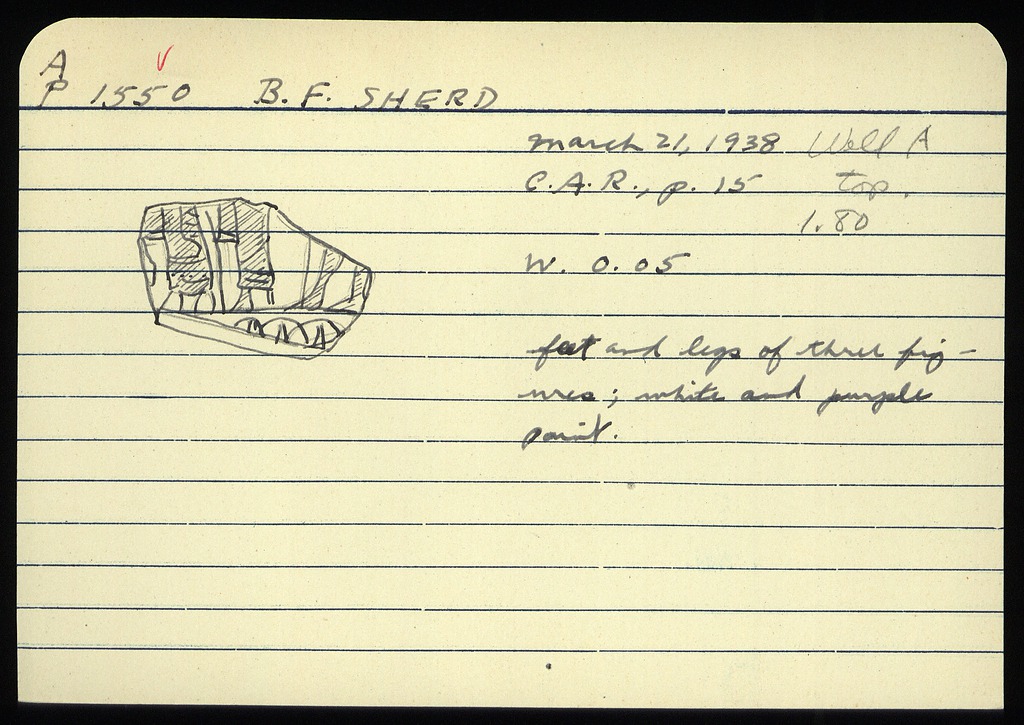 A
P 1550 B.F. SHERD
March 21, 1938 Well A
C.A.R., p. 15 top.
1.80
W. 0.05
feet and legs of three fig-
ures; white and purple
paint.